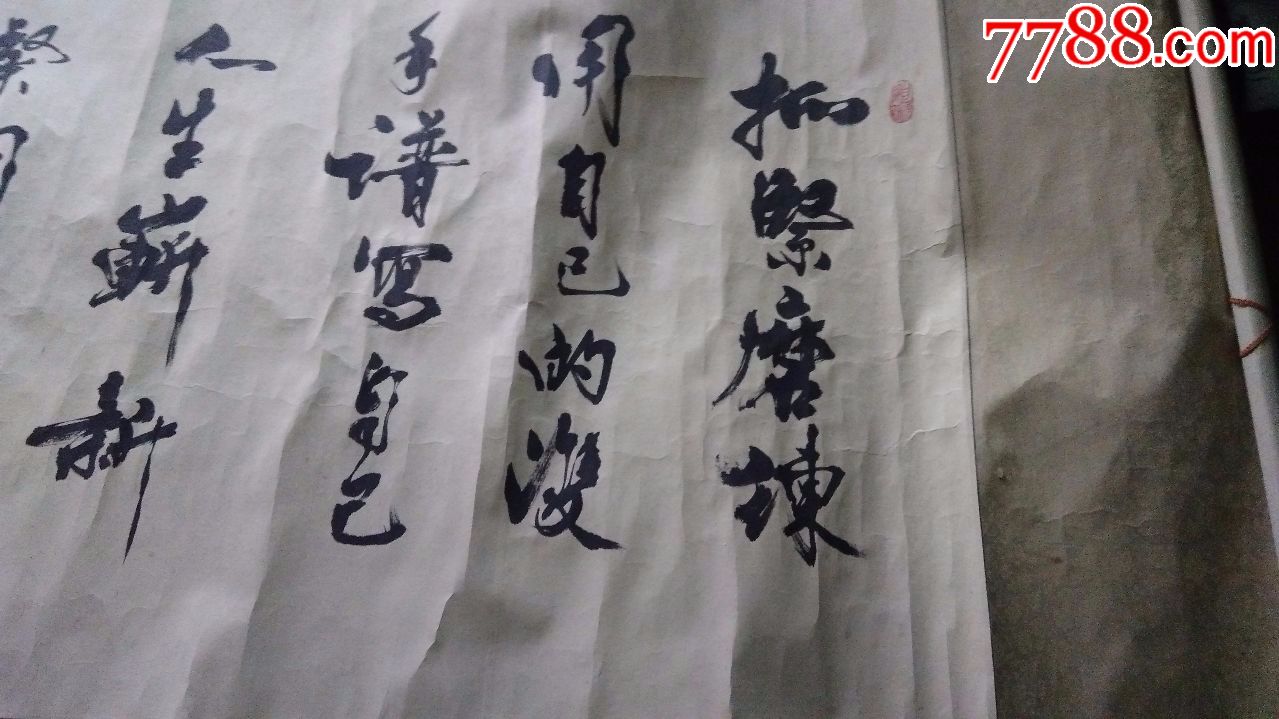 7788.com
抓緊磨煉
用自己的雙
手譜寫自己
人生嶄新